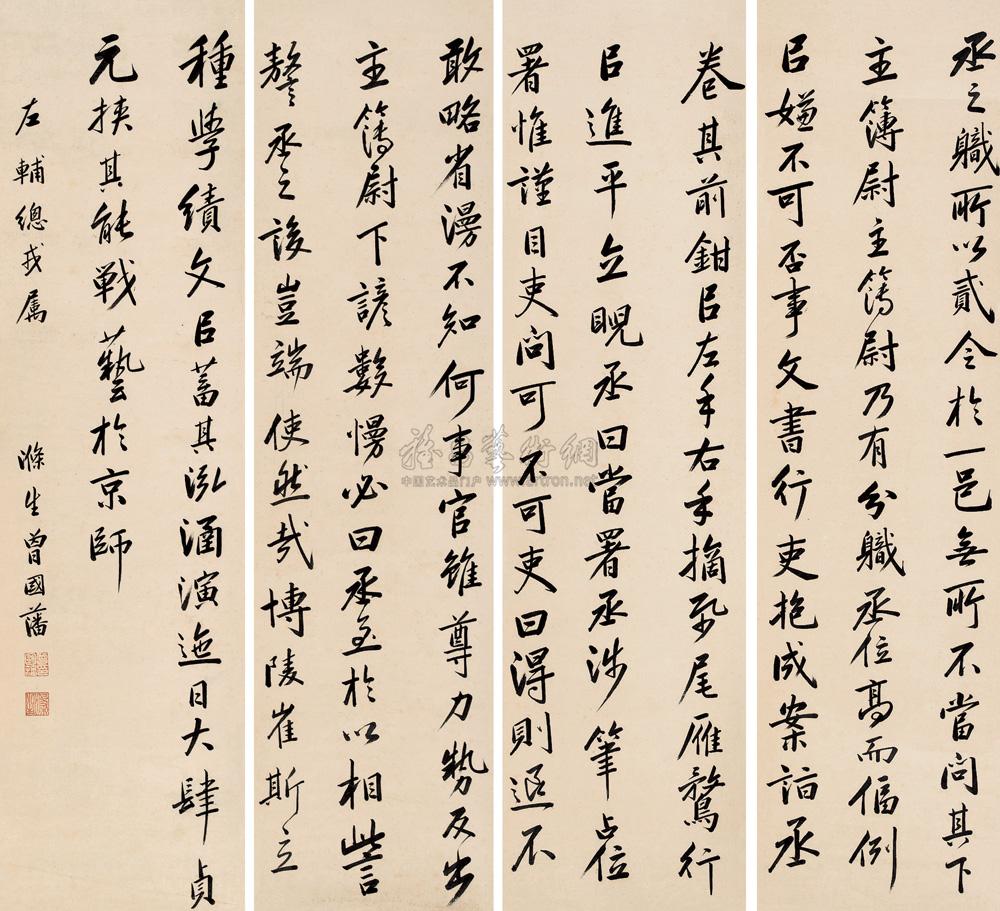 丞之職所以貳令於一邑無所不當問其下
主簿尉主簿尉乃有分職丞位高而偪例
以嫌不可否事文書行吏抱成案詣丞
卷其前鉗以左手右手摘紙尾雁鶩行
以進平立睨丞曰當署丞涉筆占位
署惟謹目吏問可不可吏曰得則退不
敢略省漫不知何事官雖尊力勢反出
主簿尉下諺數慢必曰丞至於以相訾
謷丞之設豈端使然哉博陵崔斯立
種學績文以蓄其泓涵演迤日大肆貞
元挾其能戰藝於京師
左輔總戎屬
滌生曾國藩
雅昌藝術網
中国艺术品门户 www.artron.net